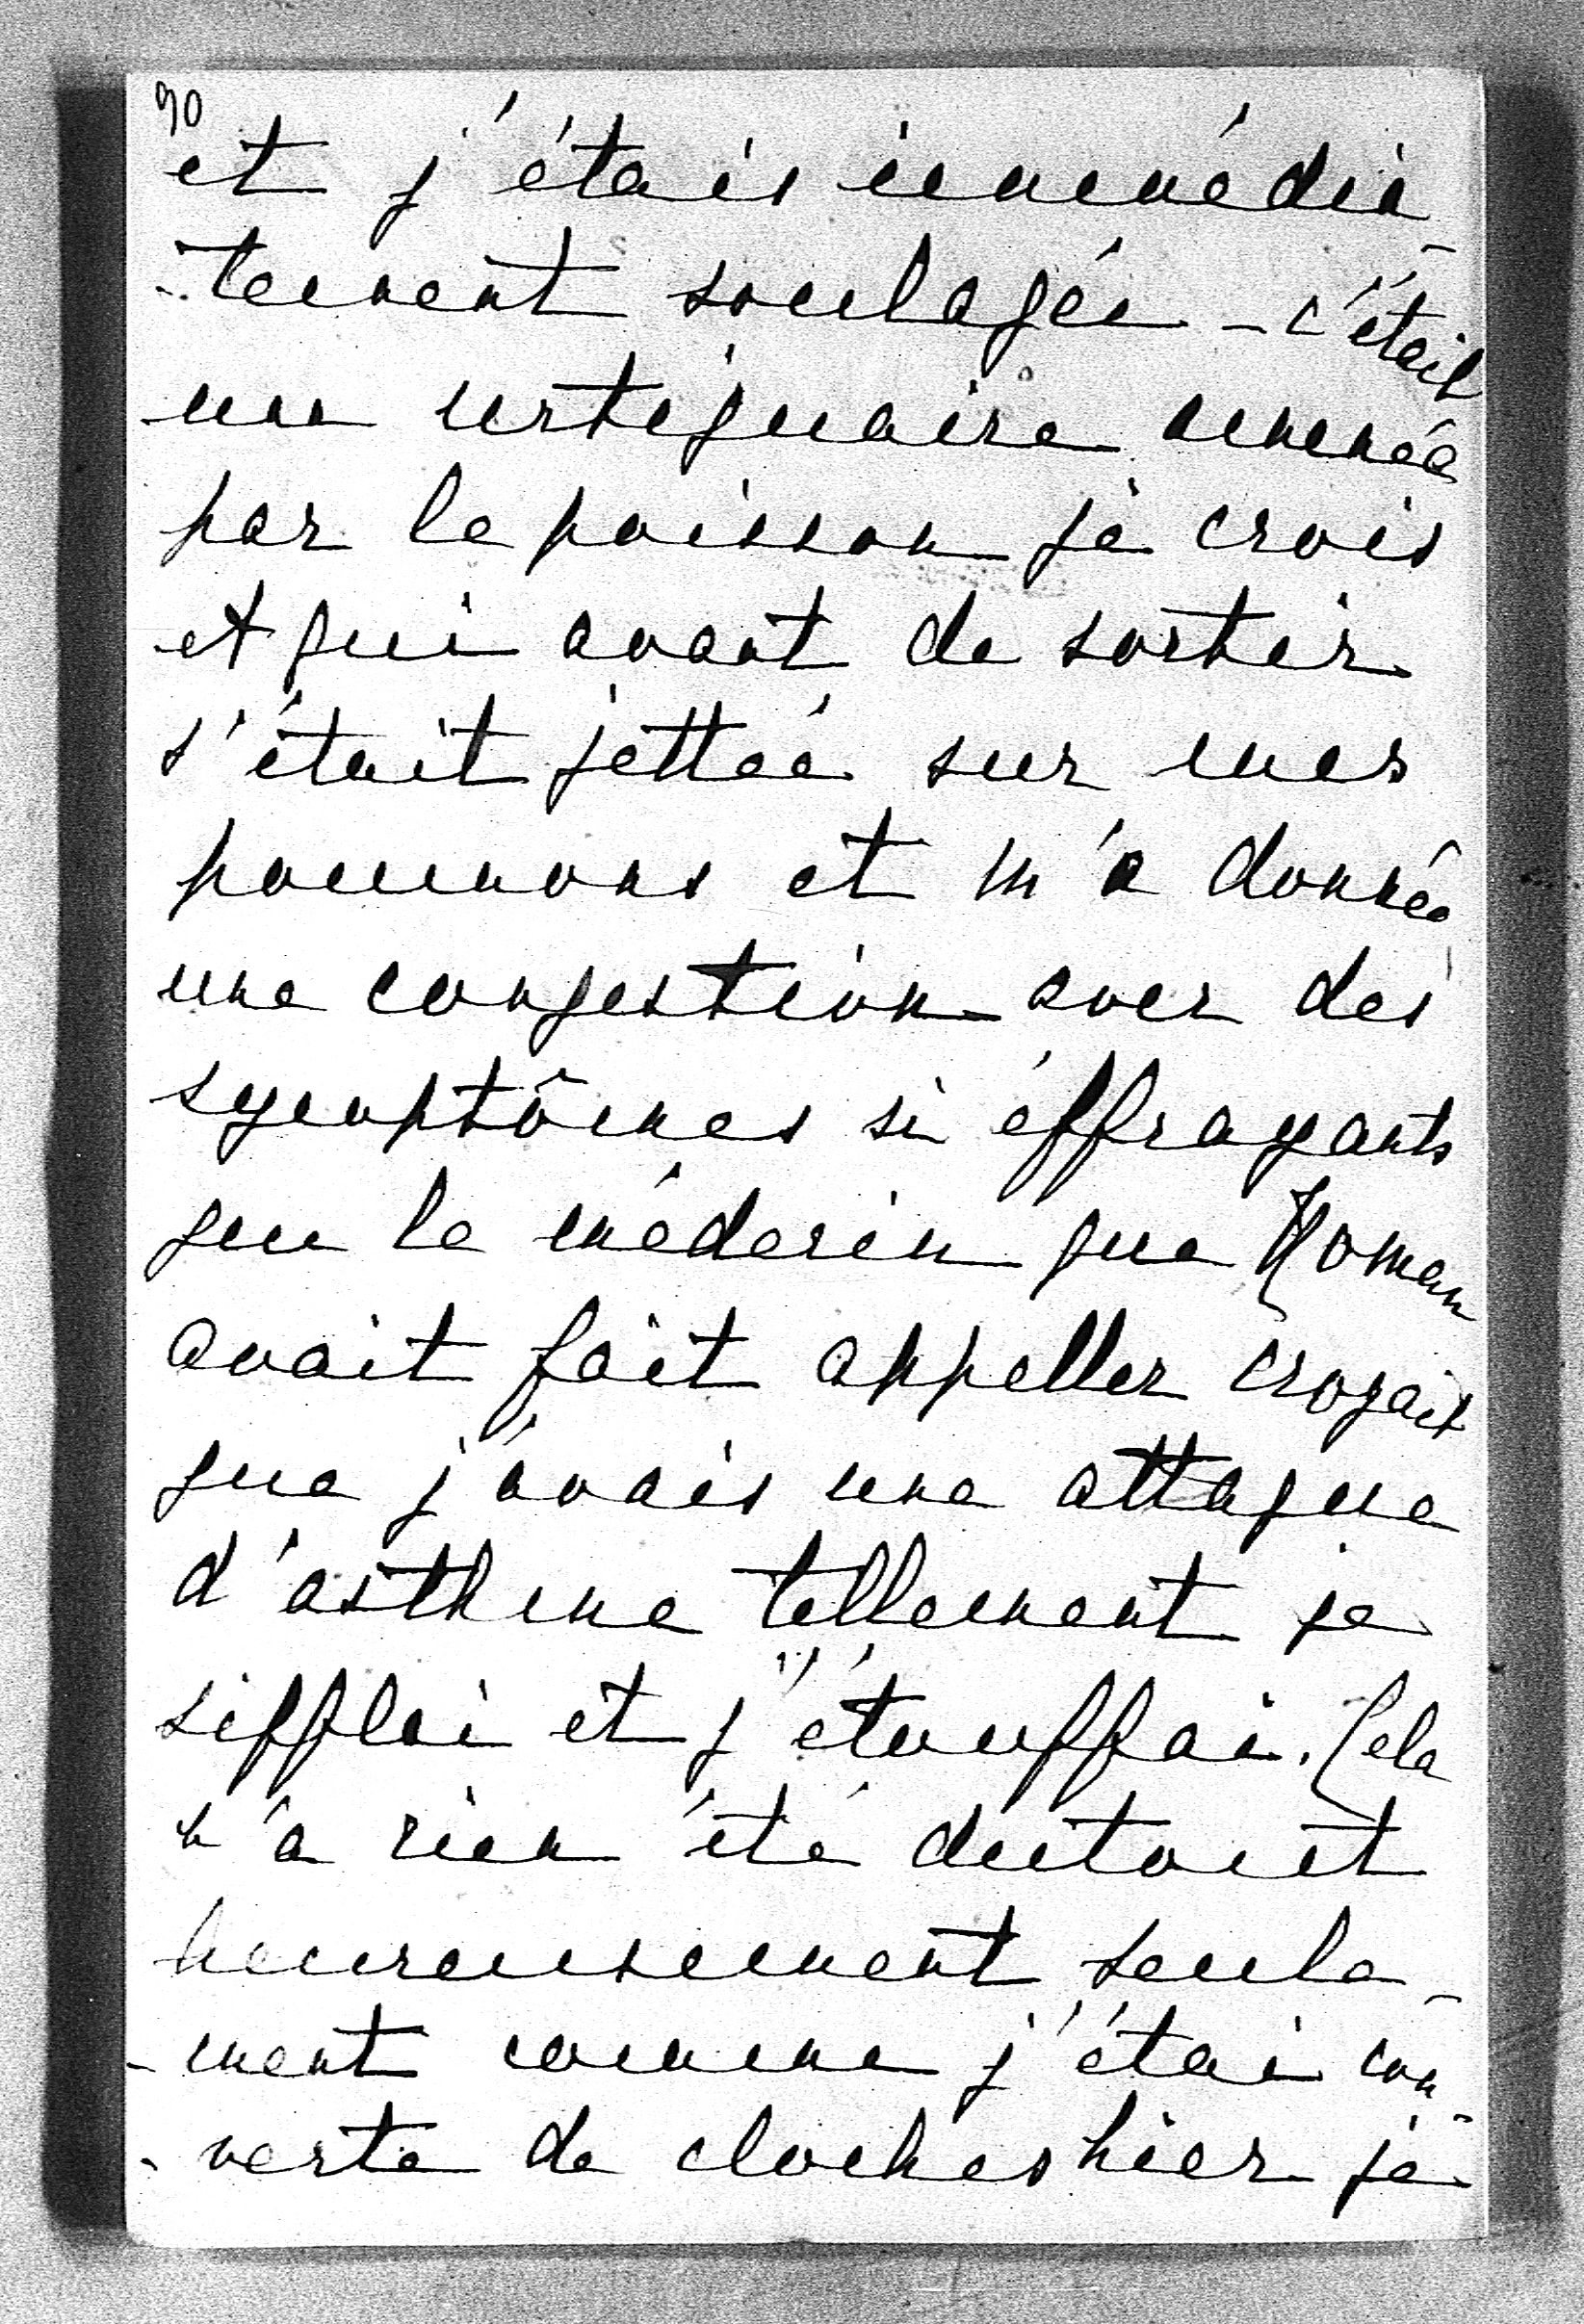 90
et j'étais immédia-
-tement soulagée - c'était
une urtiquaire amenée
par le poisson je crois
et qui avant de sortir
s'était jettée sur mes
poumons et m'a donnée
une congestion avec des
symptômes si éffrayants
que le médecin que Roman
avait fait appeller croyait
que j'avais une attaque
d'asthme tellement je
sifflai et j'étouffai. Cela
n'a rien été dutout
heureusement seule-
-ment comme j'étai cou-
-verte de cloches hier je